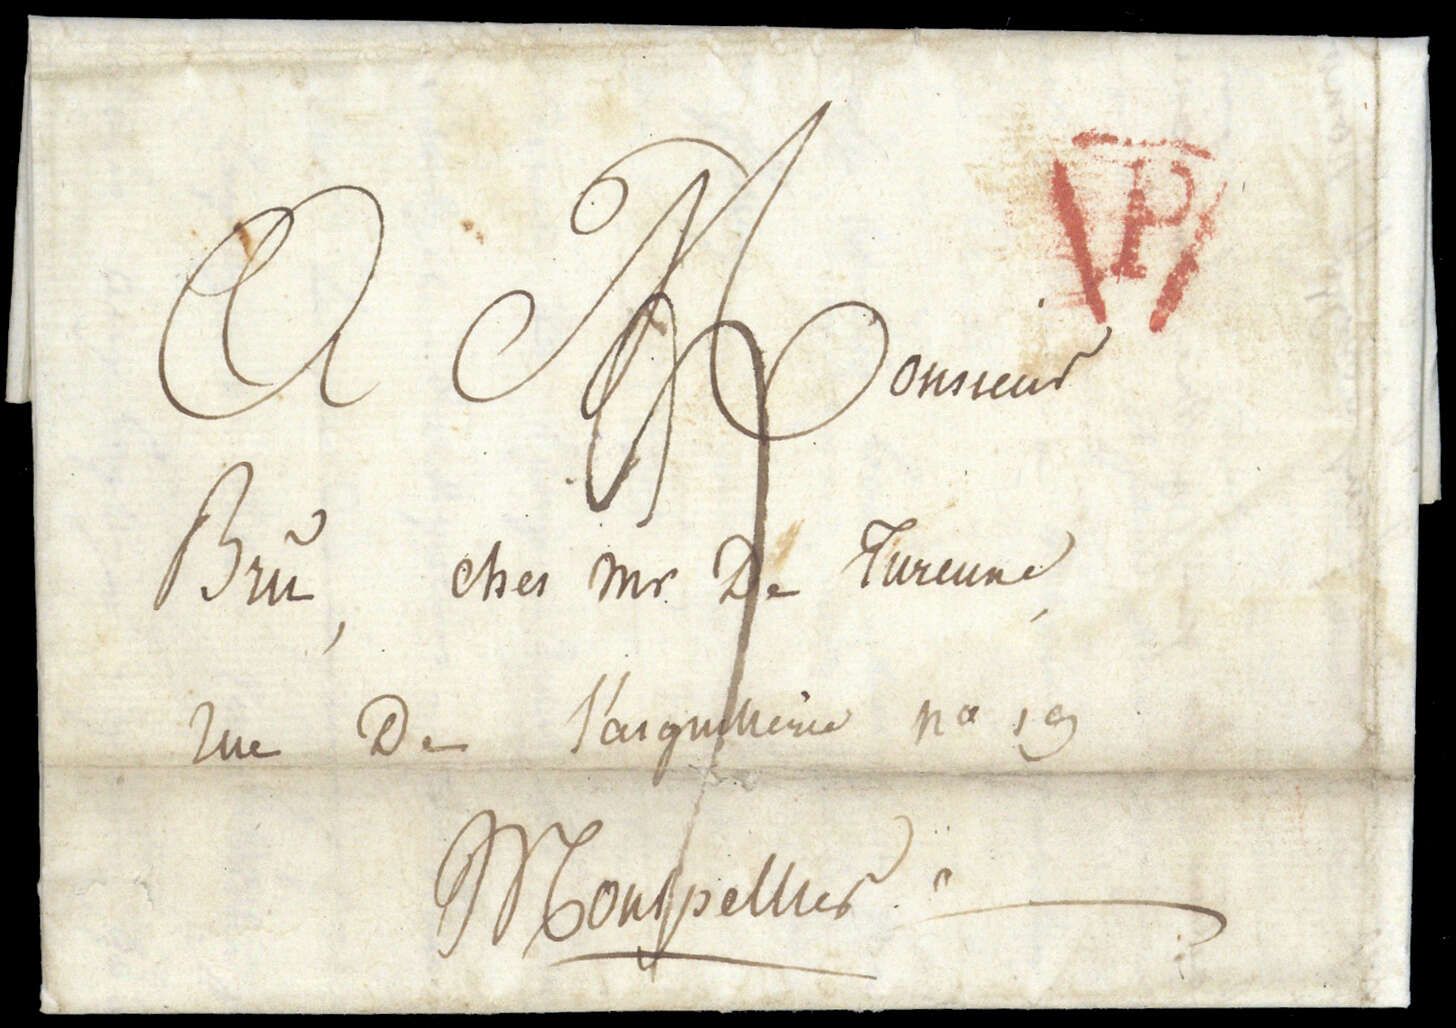 P
A Monsieur
Brû, ches Mr De Turenne,
rue De l'aiguillerie no 19
Montpellier